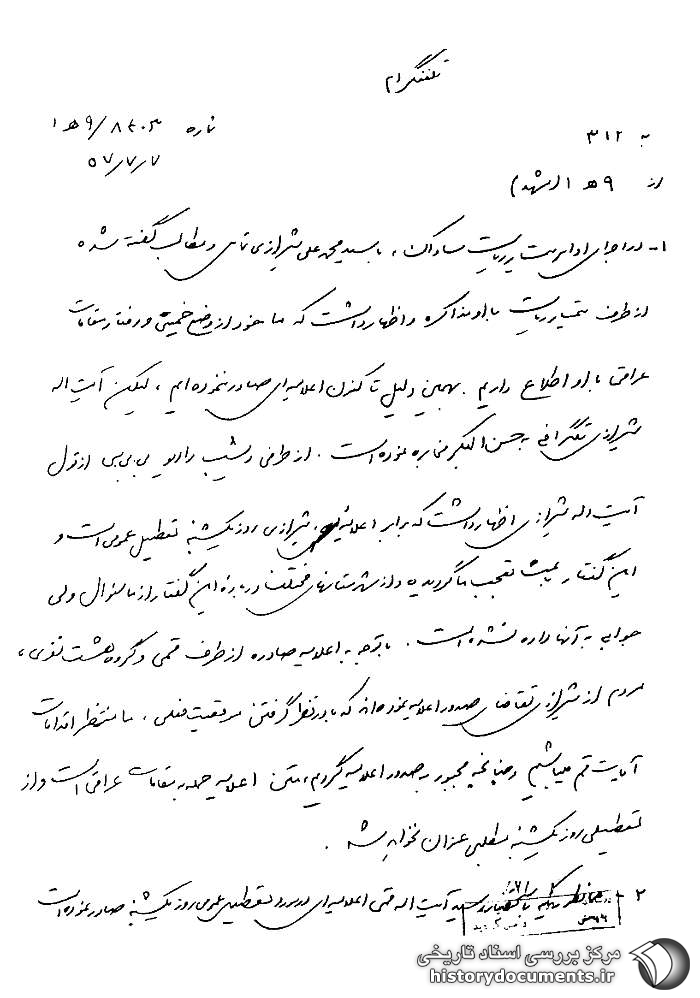 تلفنگرام
به ۳۱۲
شماره ۸۴۰۳/۹هـ۱
از ۹هـ۱ (مشهد)
۵۷/۷/۷
۱- در اجرای اوامر ریاست ساواک، با سیدمحمدعلی شیرازی تماس و مطالب گفته شده
از طرف تیمسار ریاست با او مذاکره و اظهار داشت که ما خود از وضع خمینی و رفتار مقامات
عراقی با او اطلاع داریم. بهمین دلیل تا کنون اعلامیه‌ای صادر ننموده‌ایم، لیکن آیت اله
شیرازی تلگرافی به حسن البکر مخابره نموده است. از طرفی دیشب رادیو بی.بی.سی از قول
آیت اله شیرازی اظهار داشت که برابر اعلامیه شیرازی روز یکشنبه تعطیل عمومی است و
این گفتار باعث تعجب ما گردیده و از شهرستانهای مختلف درباره این گفتار از ما سئوال ولی
جوابی به آنها داده نشده است. با توجه به اعلامیه صادره از طرف قمی و گروه هشت نفری،
مردم از شیرازی تقاضای صدور اعلامیه نموده‌اند که با در نظر گرفتن موقعیت فعلی، ما منتظر اقدامات
آیات قم میباشیم و چنانچه مجبور به صدور اعلامیه گردیم، متن اعلامیه حمله به مقامات عراقی است و از
تعطیلی روز یکشنبه مطلبی عنوان نخواهد شد.
۲- همانطور که آیت اله قمی اعلامیه‌ای در مورد تعطیل عمومی روز یکشنبه صادر نموده است
مرکز بررسی اسناد تاریخی
historydocuments.ir